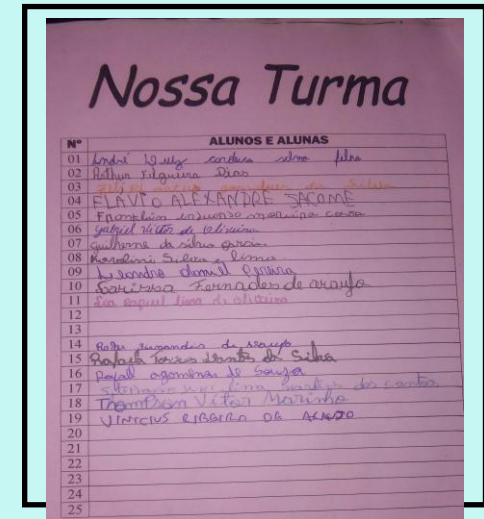 Nossa Turma
Nº ALUNOS E ALUNAS
01 André Luiz cardoso filho
02 Arthur Filgueira Dias
03 da Silva
04 FLAVIO ALEXANDRE SACOME
05 Franklin costa
06 gabriel Victor de Oliveira
07 guilherme da silva garcia
08 Karolini Silva e lima
09 Leandro daniel Pereira
10 Larissa Fernades de araujo
11 Lea raquel lima de oliveira
12
13
14 de araujo
15 Rafaela Torres dantas da Silva
16 Rafael de Souza
17 lima santos dos santos
18 Thompson Vitor Marinho
19 VINICIUS RIBEIRO DE ARAUJO
20
21
22
23
24
25